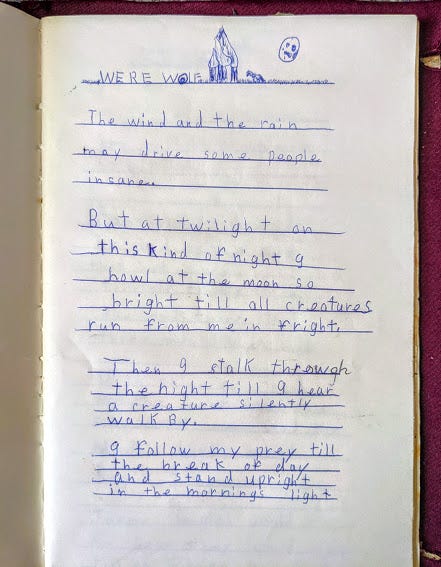 WERE WOLF
The wind and the rain
may drive some people
insane..
But at twilight on
this kind of night I
howl at the moon so
bright till all creatures
run from me in fright.
Then I stalk through
the night till I hear
a creature silently
walk By.
I follow my prey till
the break of day
and stand upright
in the mornings light